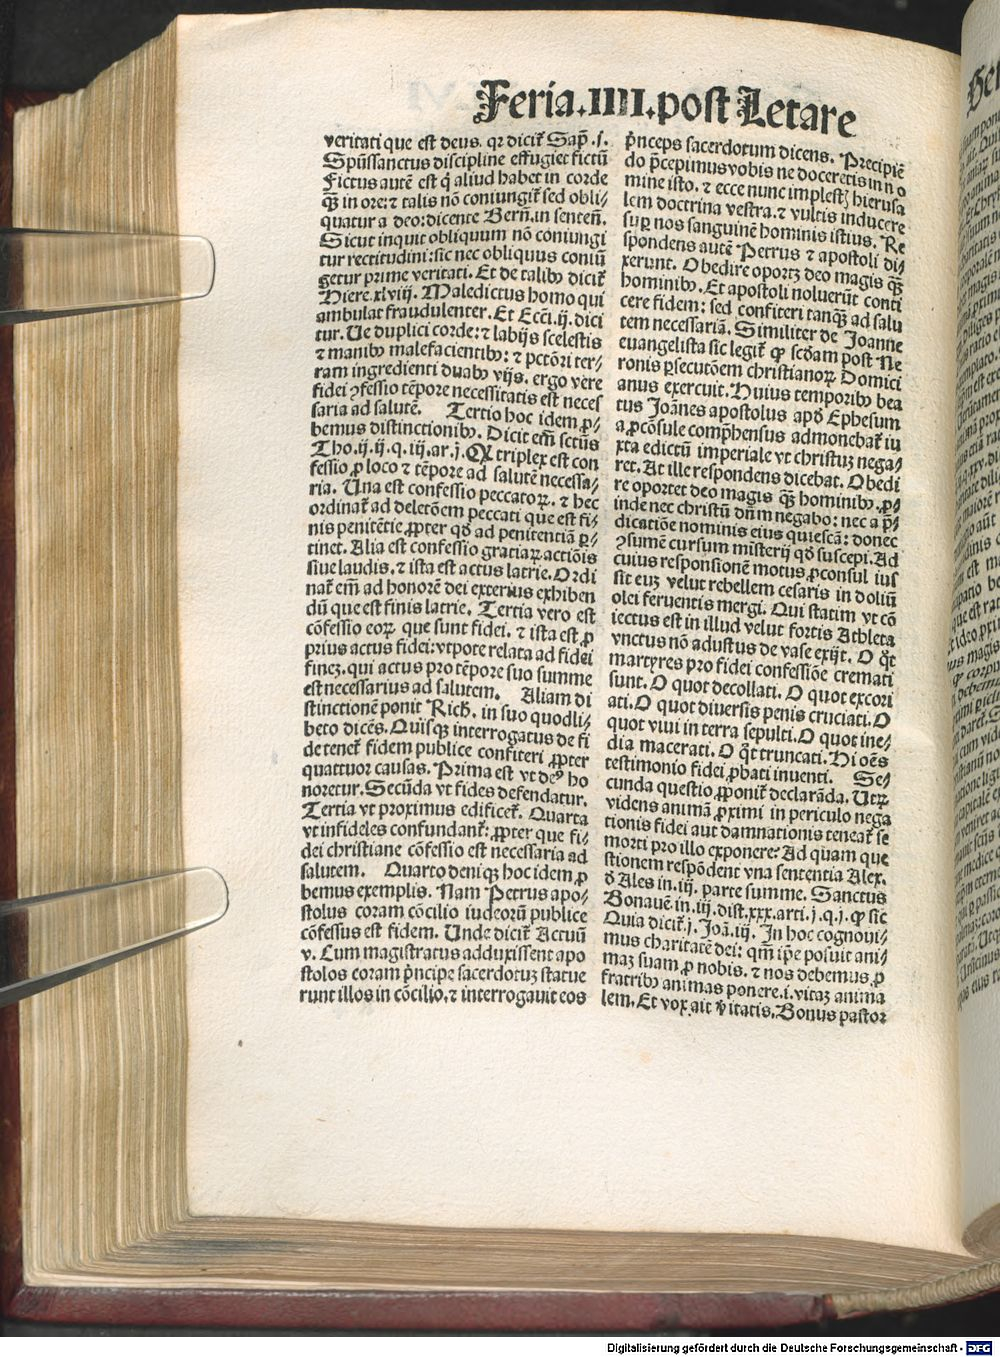 Feria.IIII.post Letare
veritati que est deus. qr dicit͛ Sap̄.j.
Spūssanctus discipline effugiet fictū
Fictus autē est q̇ aliud habet in corde
q̄ꝫ in ore: ⁊ talis nō coniungit͛ sed obli⸗
quatur a deo: dicente Bern̄. in senten̄.
Sicut inquit obliquum nō coniungi
tur rectitudini: sic nec obliquus coniū
getur prime veritati. Et de talibꝰ dicit͛
Hiere.xlviij. Maledictus homo qui
ambulat fraudulenter. Et Ecci.ij. dici
tur. Ue duplici corde: ⁊ labijs scelestis
⁊ manibꝰ malefacientibꝰ: ⁊ pctōri ter⸗
ram ingredienti duabꝰ vijs. ergo vere
fidei ꝯfessio tēpore necessitatis est neces
saria ad salutē. Tertio hoc idem ꝓ⸗
bemus distinctionibꝰ. Dicit em̄ sctūs
Tho.ij.ij.q.iij.ar.j. Qꝫ triplex est con
fessio ꝓ loco ⁊ tēpore ad salutē necessa⸗
ria. Una est confessio peccatoꝝ. ⁊ hec
ordinat͛ ad deletōem peccati que est fi⸗
nis penitētie ꝓpter qd̄ ad penitentiā ꝑ⸗
tinet. Alia est confessio gratiaꝝ actiōis
siue laudis. ⁊ ista est actus latrie. Ordi
nat͛ em̄ ad honorē dei exterius exhiben
dū que est finis latrie. Tertia vero est
cōfessio eoꝝ que sunt fidei. ⁊ ista est ꝓ
prius actus fidei: vtpote relata ad fidei
fineꝫ. qui actus pro tēpore suo summe
est necessarius ad salutem. Aliam di
stinctionem ponit Rich. in suo quodli⸗
beto dicēs. Quisqꝫ interrogatus de fi
de tenet͛ fidem publice confiteri ꝓpter
quattuor causas. Prima est vt deꝰ ho
noretur. Secūda vt fides defendatur.
Tertia vt proximus edificet͛. Quarta
vt infideles confundant͛: ꝓpter que fi⸗
dei christiane cōfessio est necessaria ad
salutem. Quarto deniqꝫ hoc idem ꝓ
bemus exemplis. Nam Petrus apo⸗
stolus coram cōcilio iudeorū publice
cōfessus est fidem. Unde dicit͛ Actuū
v. Cum magistratus adduxissent apo
stolos coram pr̄ncipe sacerdotuꝫ statue
runt illos in cōcilio. ⁊ interrogauit eos
pr̄nceps sacerdotum dicens. Precipiē
do p̄cepimus vobis ne doceretis in no
mine isto. ⁊ ecce nunc implestꝫ hierusa
lem doctrina vestra. ⁊ vultis inducere
suꝑ nos sanguinē hominis istius. Re
spondens autē Petrus ⁊ apostoli di⸗
xerunt. Obedire oportꝫ deo magis q̄ꝫ
hominibꝰ. Et apostoli noluerūt conti
cere fidem: sed confiteri tanq̄ꝫ ad salu
tem necessariā. Similiter de Joanne
euangelista sic legit͛ ꝙ scd̄am post Ne
ronis ꝑsecutōem christianoꝝ Domici
anus exercuit. Huius temporibꝰ bea
tus Joānes apostolus apd̄ Ephesum
a ꝓcōsule comp̄hensus admonebat͛ iu
xta edictū imperiale vt christuꝫ nega⸗
ret. At ille respondens dicebat. Obedi
re oportet deo magis q̄ꝫ hominibꝰ. ꝓ⸗
inde nec christū dn̄m negabo: nec a p̄⸗
dicatiōe nominis eius quiescā: donec
ꝯsumē cursum misterij qd̄ suscepi. Ad
cuius responsionē motus ꝓconsul ius
sit euꝫ velut rebellem cesaris in doliū
olei feruentis mergi. Qui statim vt cō
iectus est in illud velut fortis Athleta
vnctus nō adustus de vase exijt. O qt̄
martyres pro fidei confessiōe cremati
sunt. O quot decollati. O quot excori
ati. O quot diuersis penis cruciati. O
quot viui in terra sepulti. O quot ine⸗
dia macerati. O qt̄ truncati. Hi oēs
testimonio fidei ꝓbati inuenti. Se⸗
cunda questio ꝓponit͛ declarāda. Utꝝ
videns animā ꝓximi in periculo nega
tionis fidei aut damnationis teneat͛ se
morti pro illo exponere? Ad quam que
stionem respōdent vna sententia Alex.
d̄ Ales in.iij. parte summe. Sanctus
Bonauē in.iij.dist.xxx.arti.j.q.j. ꝙ sic
Quia dicit͛.j. Joā.iij. In hoc cognoui⸗
mus charitatē dei: qm̄ ip̄e posuit ani⸗
maꝫ suam ꝓ nobis. ⁊ nos debemus ꝓ
fratribꝰ animas ponere.i. vitaꝫ anima
lem. Et vox ait v̄itatis. Bonus pastor
Digitalisierung gefördert durch die Deutsche Forschungsgemeinschaft - DFG